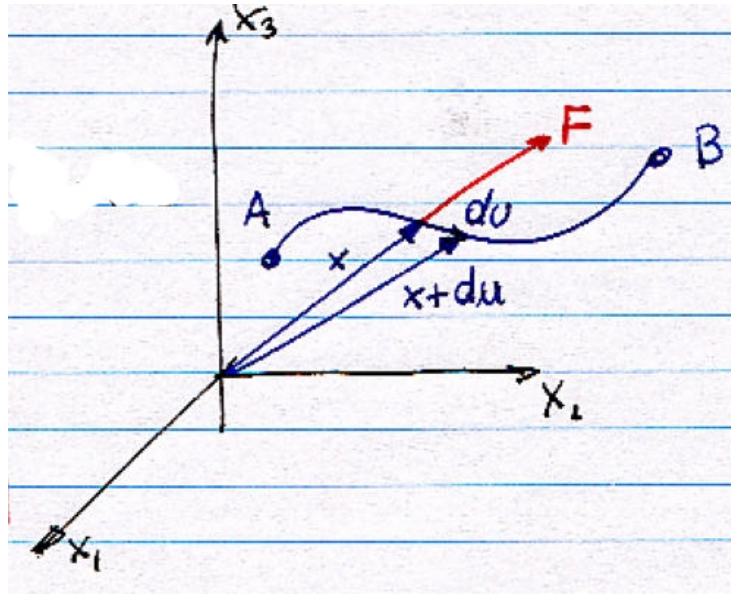 X₃
F
B
A
du
x
x+du
X₂
X₁